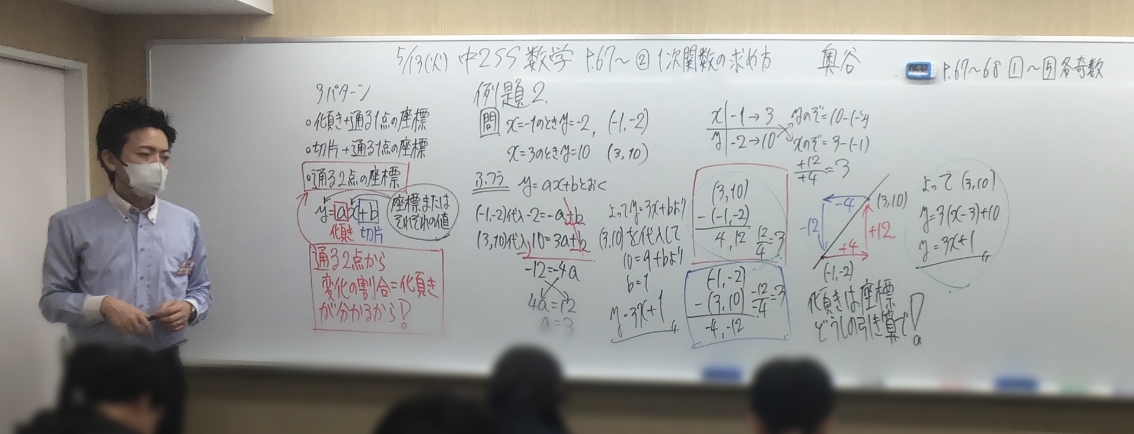 5/13(火) 中2SS 数学 P.67～ ② 1次関数の求め方 奥谷
P.67～68 1～5 各奇数
3パターン
○傾き+通る1点の座標
○切片+通る1点の座標
○通る2点の座標
y=ax+b
傾き 切片
座標または
それぞれの値
通る2点から
変化の割合=傾き
が分かるから!
例題2.
問 x=-1のときy=-2, (-1,-2)
x=3のときy=10 (3,10)
y=ax+bとおく
(-1,-2)代入 -2=-a+b
(3,10)代入 10=3a+b
-12=-4a
4a=12
a=3
よってy=3x+bより
(3,10)を代入して
10=9+bより
b=1
y=3x+1
x -1→3
y -2→10
yのぞ=10-(-2)
xのぞ=3-(-1)
+12/+4=3
(3,10)
-(-1,-2)
4,12
12/4=3
(-1,-2)
-(3,10)
-4,-12
-12/-4=3
-4 (3,10)
-12 +12
+4
(-1,-2)
傾きは座標
どうしの引き算で!
よって(3,10)
y=3(x-3)+10
y=3x+1